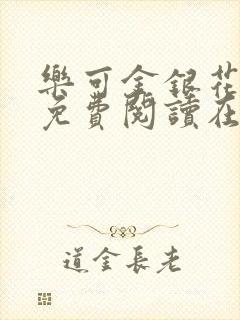 樂可金銀花
免費閱讀在
道金長老